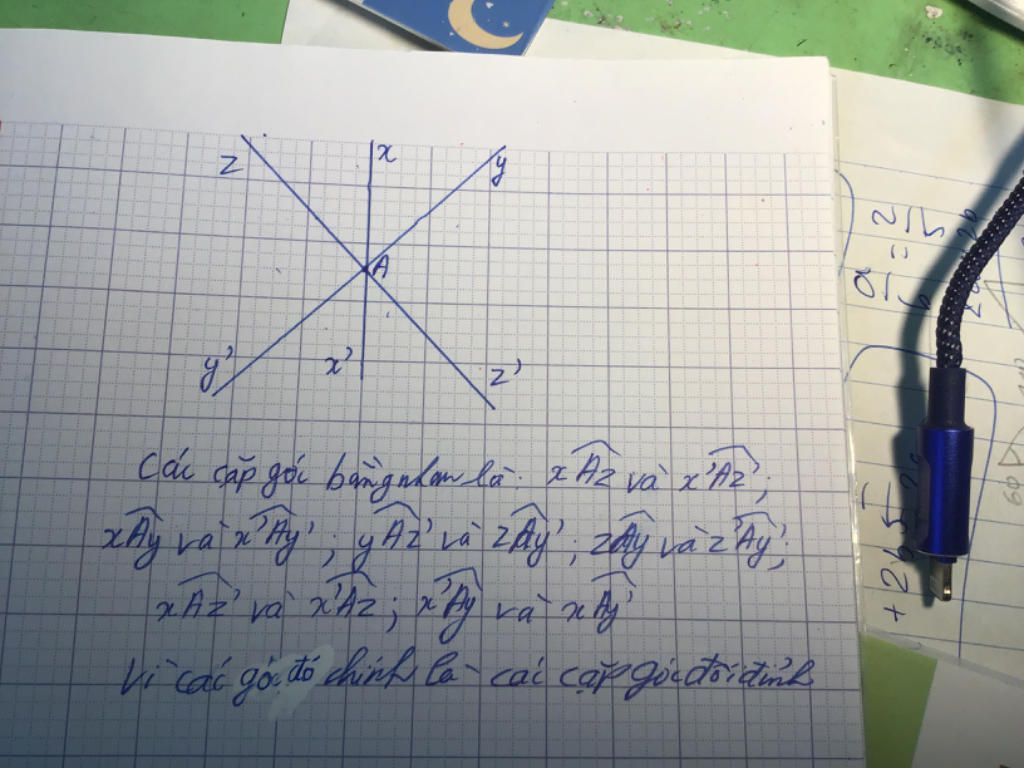 z x y
A
y' x' z'
Các cặp góc bằng nhau là: xAz và x'Az';
xAy và x'Ay'; yAz' và zAy'; zAy và z'Ay';
xAz' và x'Az; x'Ay và xAy'
Vì các góc đó chính là các cặp góc đối đỉnh
a/b = 2/5
+2b